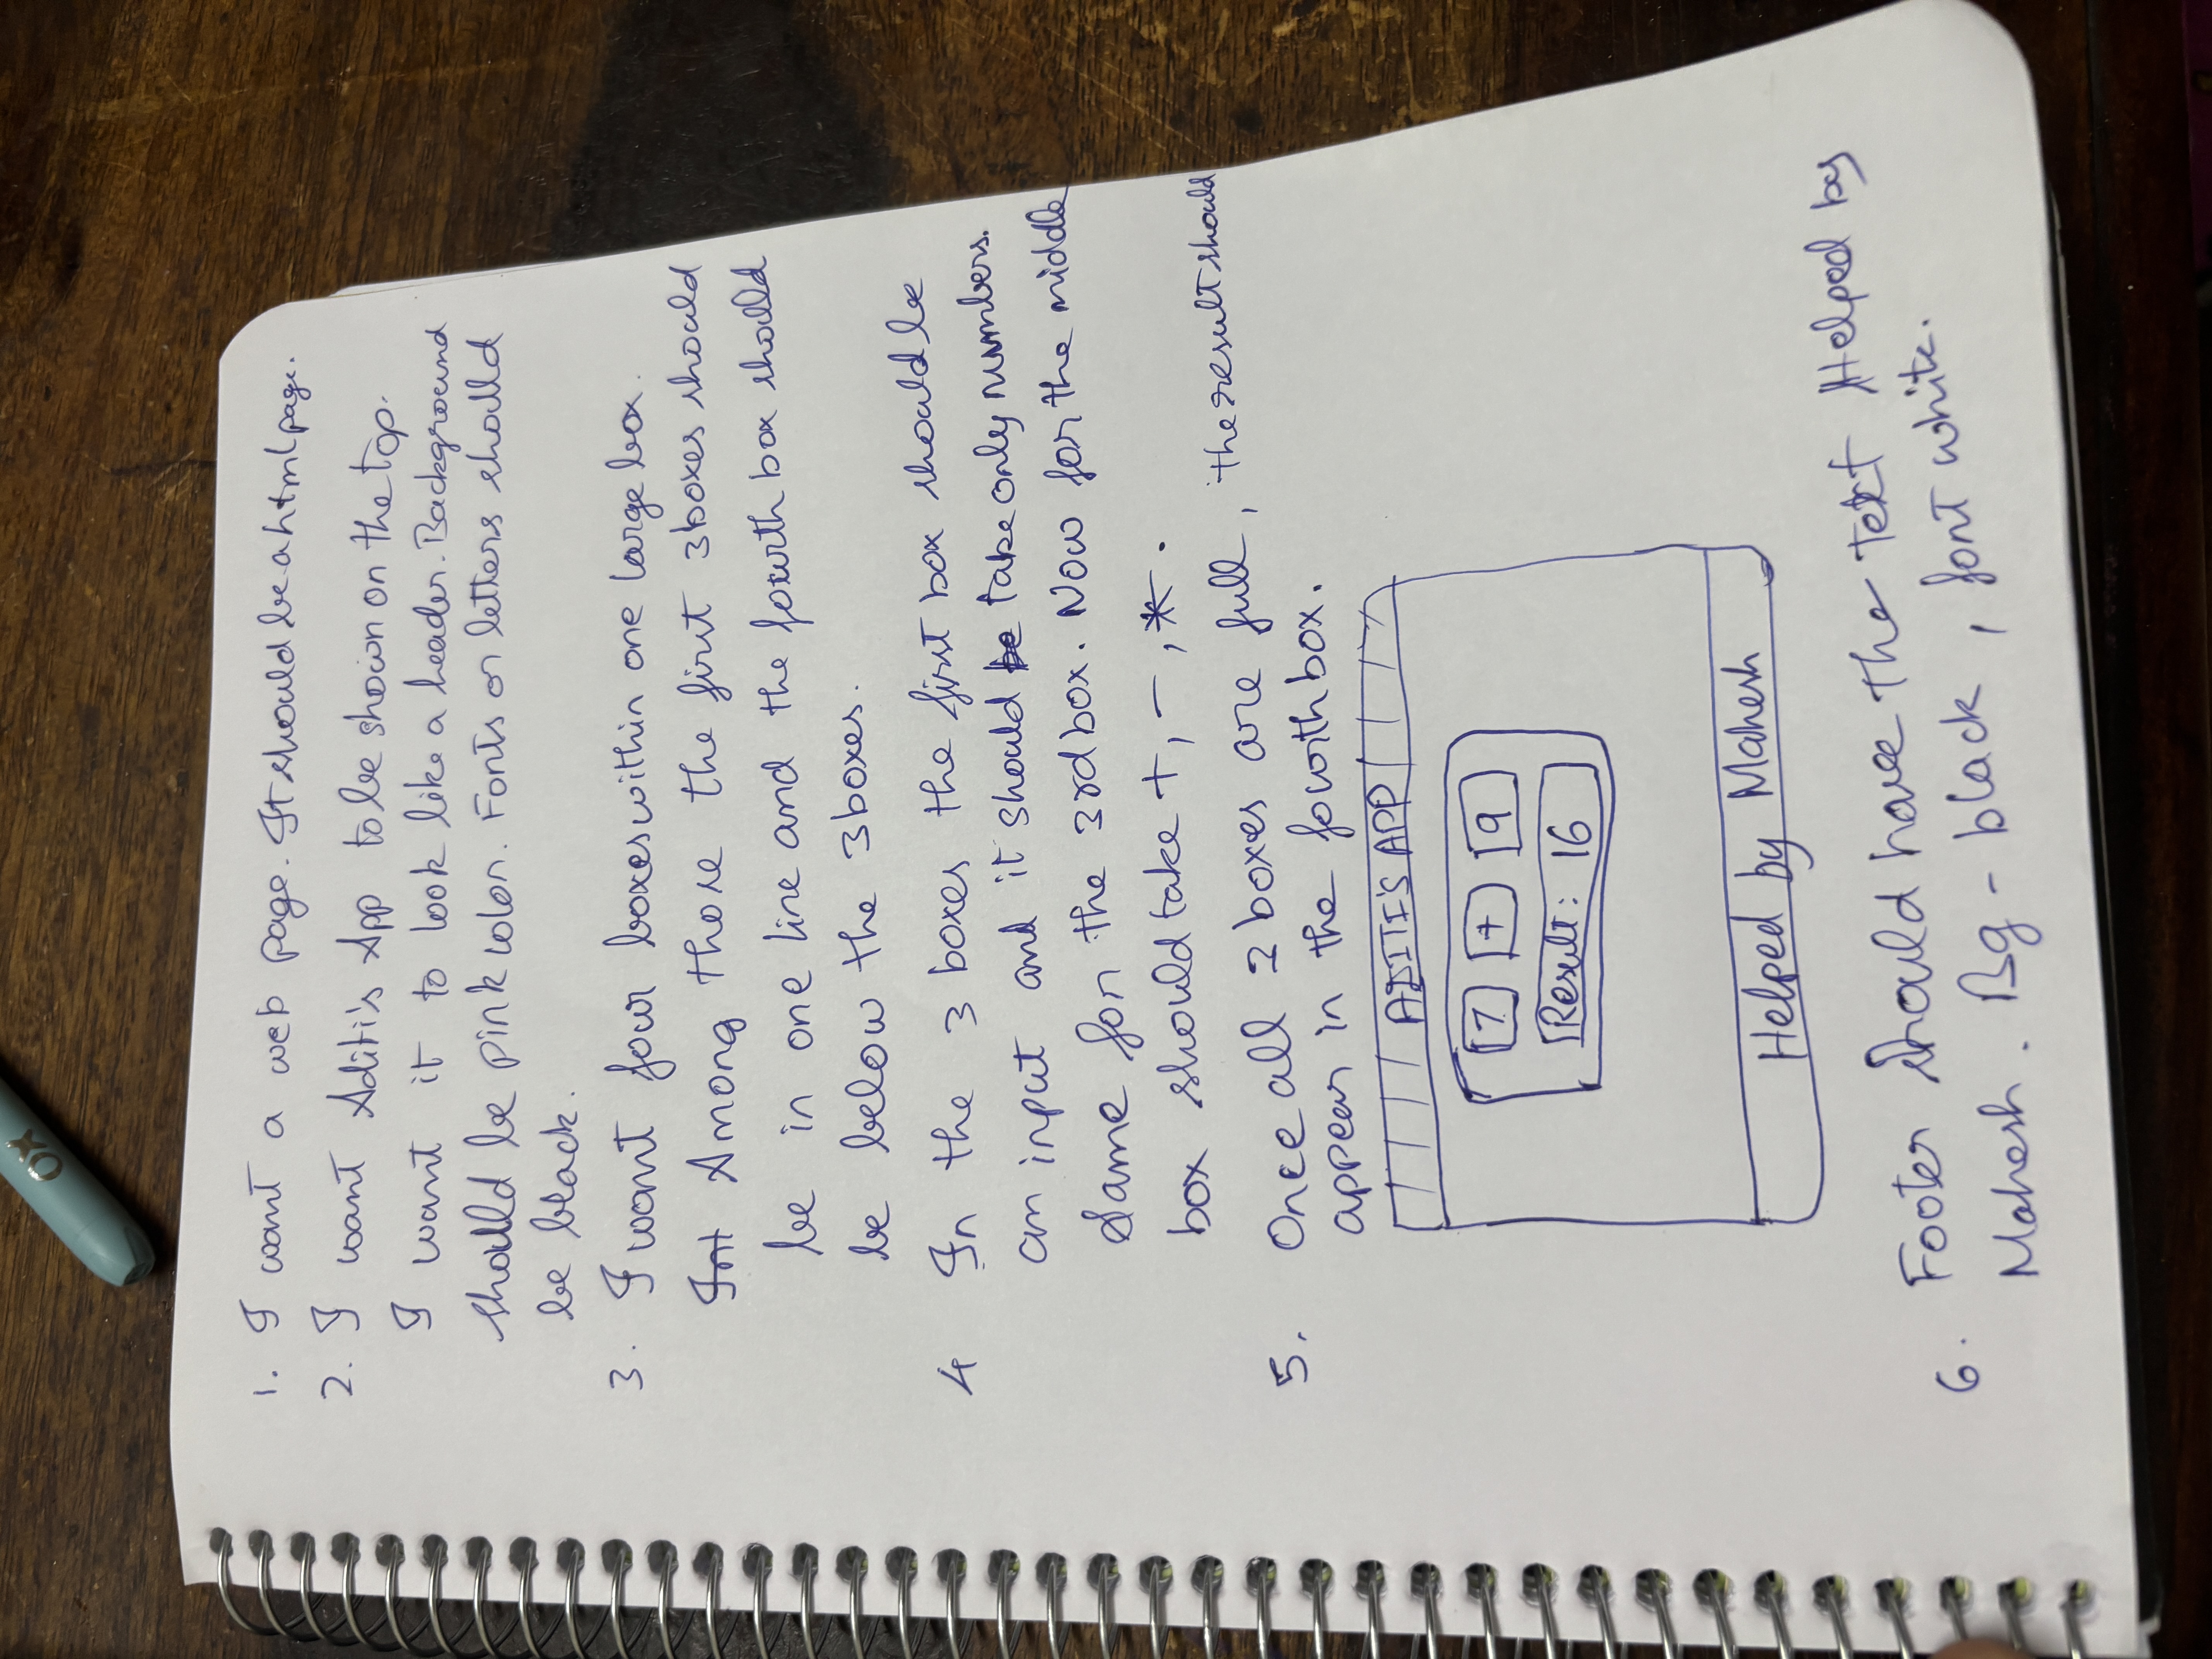 OX
1. I want a web page. It should be a html page.
2. I want Aditi's App to be shown on the top.
I want it to look like a header. Background
should be pink color. Fonts or letters should
be black.
3. I want four boxes within one large box.
Int Among those the first 3 boxes should
be in one line and the fourth box should
be below the 3 boxes.
4 In the 3 boxes the first box should be
an input and it should be take only numbers.
Same for the 3rd box. Now for the middle
box should take +, -, *.
5. Once all 3 boxes are full, the result should
appear in the fourth box.
ADITI'S APP
7 + 9
Result: 16
Helped by Mahesh
6. Footer should have the text Helped by
Mahesh. Bg - black, font white.